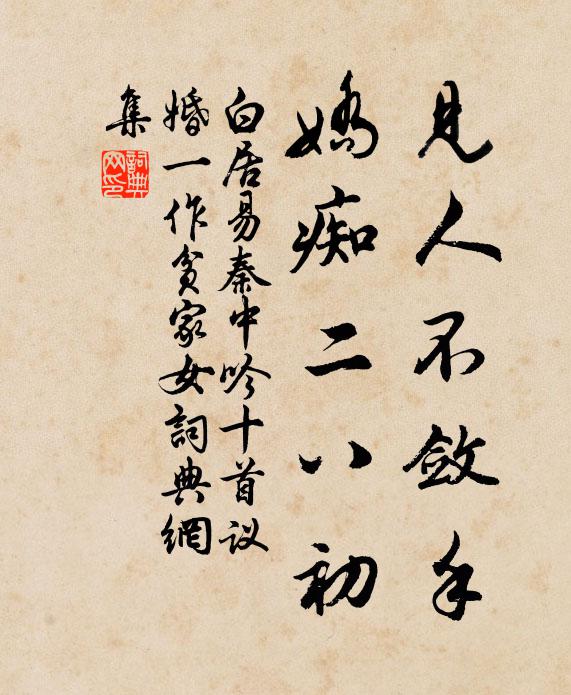 見人不斂手
嬌痴二八初
白居易秦中吟十首议
婚一作貧家女詞典網
集
詞典
网印